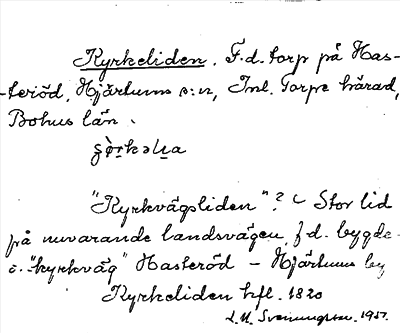 Kyrkeliden. F. d. torp på Has-
-teröd, Hjärtums s:n, Inl. Torpe härad,
Bohus län.
"Kyrkvägsliden"? Stor lid
på nuvarande landsvägen, f.d. bygde-
o. "kyrkväg" Hasteröd – Hjärtums by
Kyrkeliden hfl. 1820
1951.